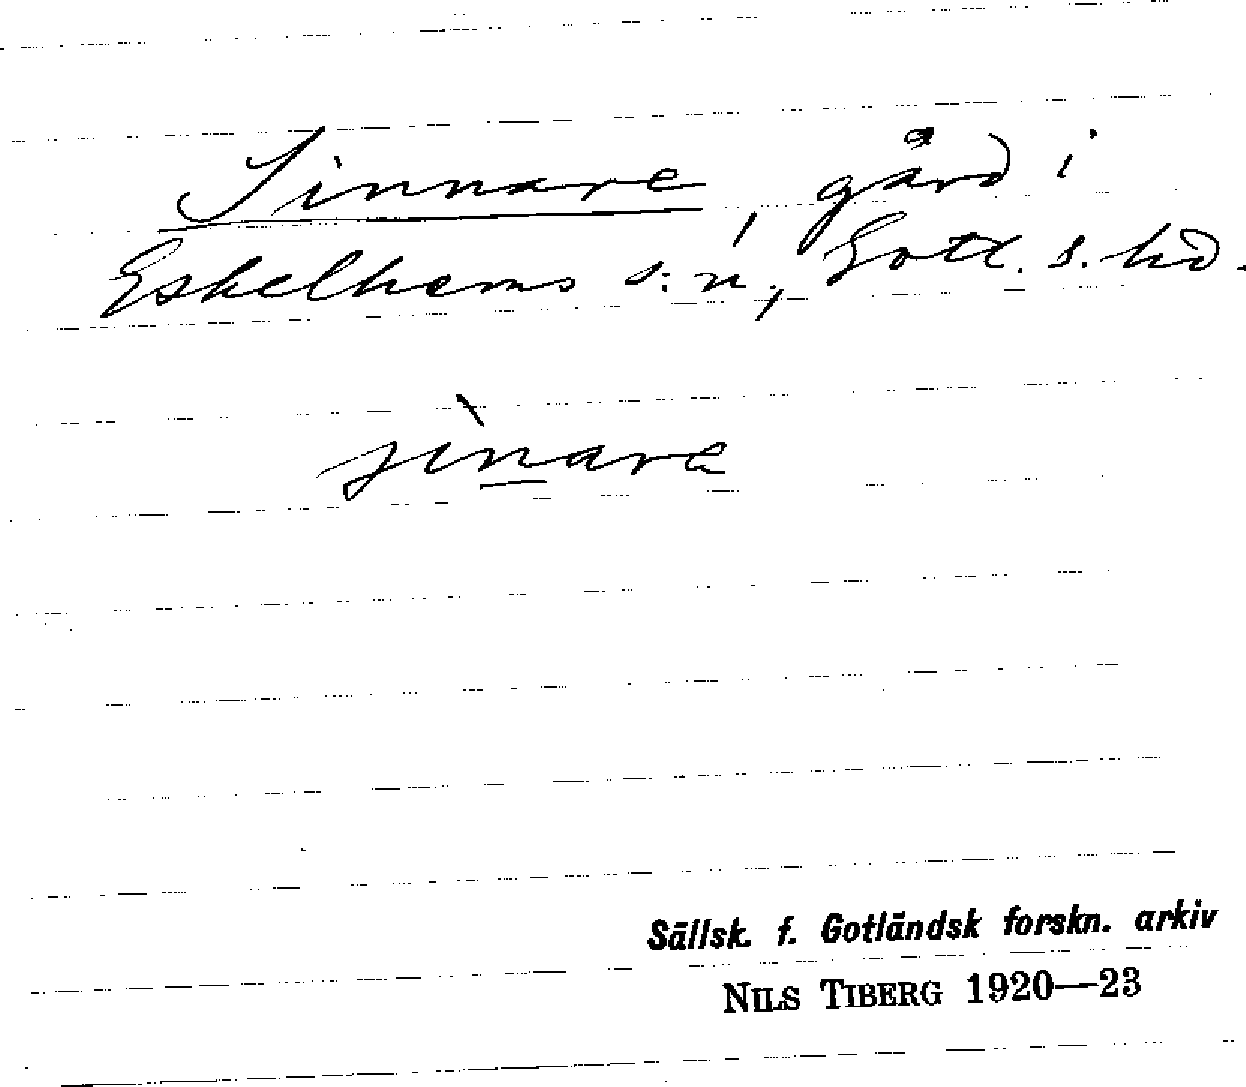 Sinnare, gård i
Eskelhems s:n, Gotl. s. hd.
sìnara
Sällsk. f. Gotländsk forskn. arkiv
NILS TIBERG 1920—23